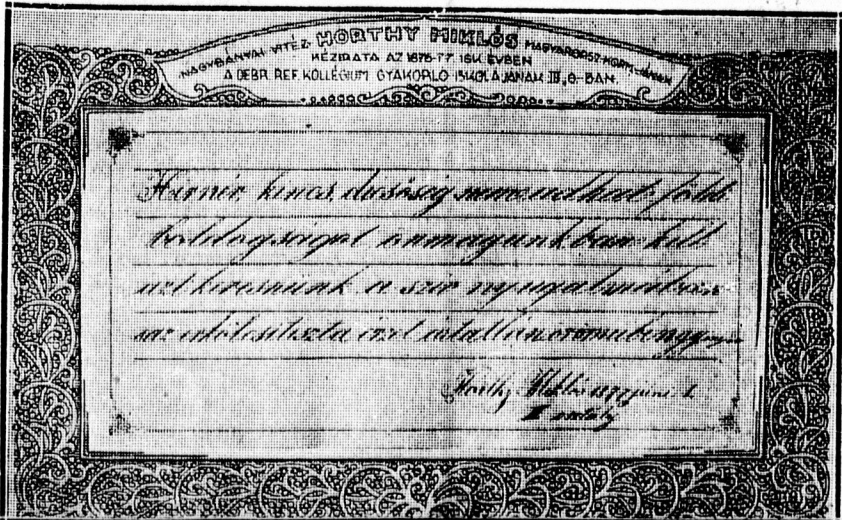 NAGYBÁNYAI VITÉZ HORTHY MIKLÓS MAGYARORSZ. KORM.-JÁNAK
KÉZIRATA AZ 1876-77. ISK. ÉVBEN
A DEBR. REF. KOLLÉGIUM GYAKORLÓ ISKOLÁJÁNAK III. O.-BAN.
Hirnév, kincs, dusság nem adhat földi
boldogságot önmagunkban kell
azt keresnünk a sziv nyugalmában
az erkölcsi tiszta
Horthy Miklós 1877
III osztály